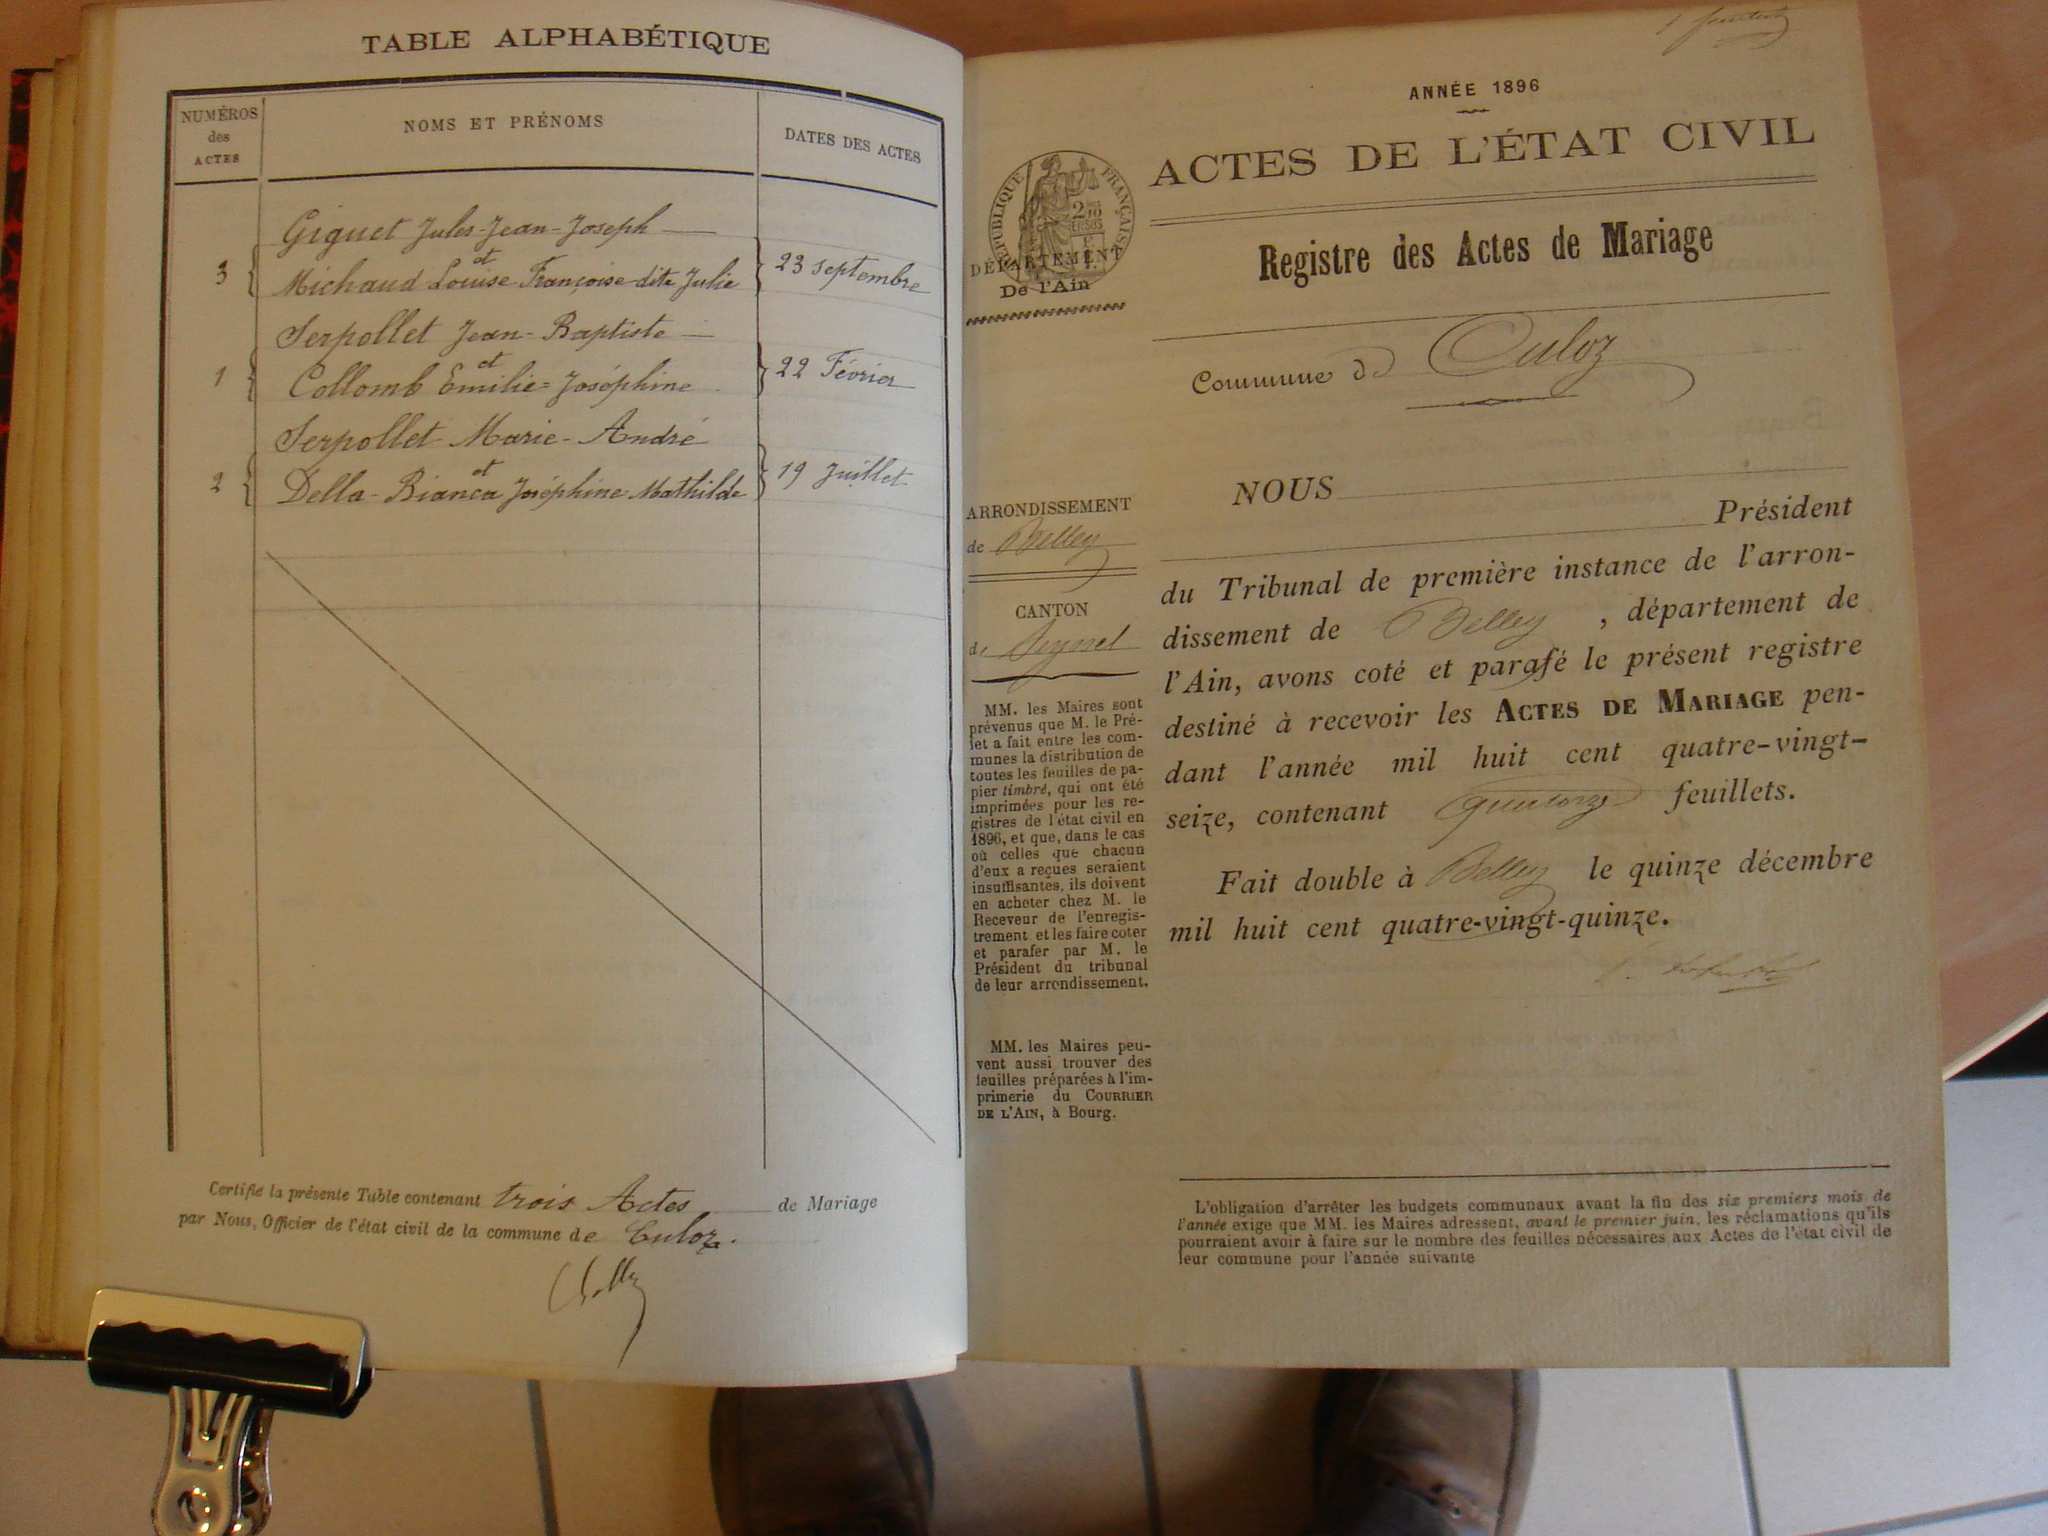 TABLE ALPHABÉTIQUE
NUMÉROS
des
ACTES
NOMS ET PRÉNOMS
DATES DES ACTES
Giguet Jules-Jean-Joseph
et
3 Michaud Louise Françoise dite Julie 23 septembre
Serpollet Jean-Baptiste
et
1 Collomb Emilie-Joséphine 22 Février
Serpollet Marie-André
et
2 Della-Bianca Joséphine Mathilde 19 Juillet
Certifié la présente Table contenant trois Actes de Mariage
par Nous, Officier de l'état civil de la commune de Culoz.
ANNÉE 1896
ACTES DE L'ÉTAT CIVIL
RÉPUBLIQUE FRANÇAISE
DÉPARTEMENT
De l'Ain
Registre des Actes de Mariage
Commune de Culoz
ARRONDISSEMENT
de Belley
CANTON
de Seyssel
MM. les Maires sont
prévenus que M. le Pré-
fet a fait entre les com-
munes la distribution de
toutes les feuilles de pa-
pier timbré, qui ont été
imprimées pour les re-
gistres de l'état civil en
1896, et que, dans le cas
où celles que chacun
d'eux a reçues seraient
insuffisantes, ils doivent
en acheter chez M. le
Receveur de l'enregis-
trement et les faire coter
et parafer par M. le
Président du tribunal
de leur arrondissement.
MM. les Maires peu-
vent aussi trouver des
feuilles préparées à l'im-
primerie du COURRIER
DE L'AIN, à Bourg.
NOUS
Président
du Tribunal de première instance de l'arron-
dissement de Belley, département de
l'Ain, avons coté et parafé le présent registre
destiné à recevoir les ACTES DE MARIAGE pen-
dant l'année mil huit cent quatre-vingt-
seize, contenant quatorze feuillets.
Fait double à Belley le quinze décembre
mil huit cent quatre-vingt-quinze.
L'obligation d'arrêter les budgets communaux avant la fin des six premiers mois de
l'année exige que MM. les Maires adressent, avant le premier juin, les réclamations qu'ils
pourraient avoir à faire sur le nombre des feuilles nécessaires aux Actes de l'état civil de
leur commune pour l'année suivante